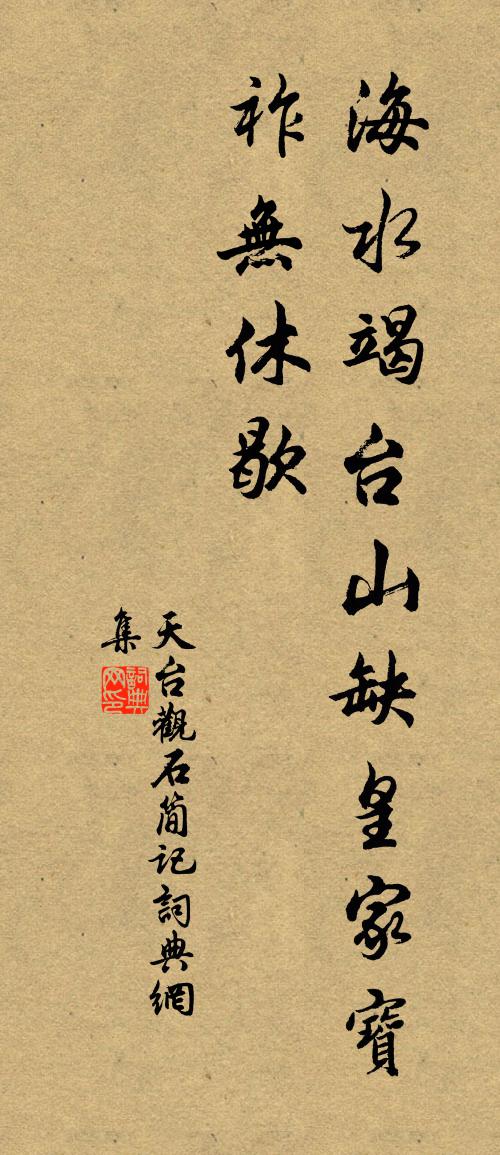 海水竭台山缺皇家寶
祚無休歇
天台觀石簡記詞典網
集
詞典
网印